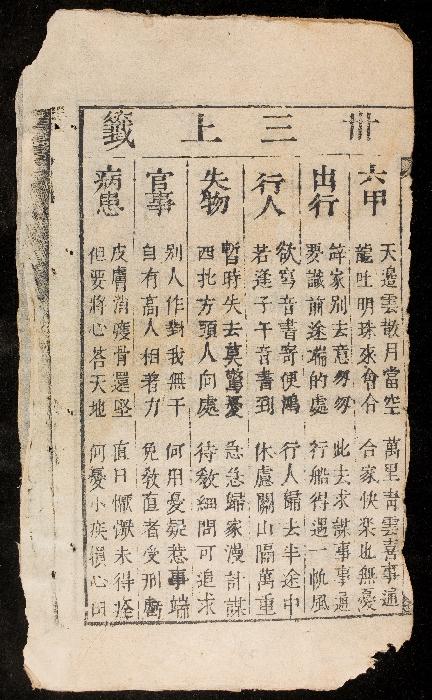 卅三上籤
六甲
天邊雲散月當空 萬里青雲喜事通
龍吐明珠來會合 合家快楽也無憂
出行
辝家别去意匆匆 此去求謀事事通
要識前途端的處 行船得遇一帆風
行人
欲寫音書寄便鴻 行人歸去半途中
若逢子午音書到 休慮關山隔萬重
失物
暫時失去莫驚憂 急急歸家漫計謀
西北方頭人向處 待敎細問可追求
官事
别人作對我無干 何用憂疑愁事端
自有高人相着力 免敎直者受刑
病患
皮膚消瘦骨還堅 直日懨懨未得痊
但要將心答天地 何憂小疾損心田